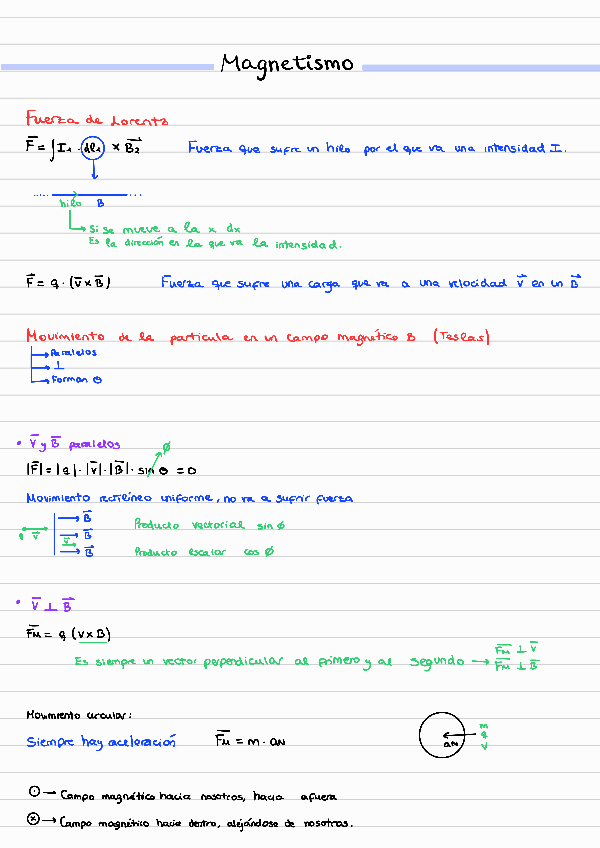 Magnetismo
Fuerza de Lorentz
F⃗ = ∫ I₁ · dl₁ × B₂⃗ Fuerza que sufre un hilo por el que va una intensidad I.
hilo B
Si se mueve a la x dx
Es la dirección en la que va la intensidad.
F⃗ = q · (v⃗ × B⃗) Fuerza que sufre una carga que va a una velocidad v⃗ en un B⃗
Movimiento de la particula en un campo magnético B (Teslas)
→ Paralelos
→ ⊥
→ Forman θ
• V⃗ y B⃗ paralelos
|F⃗| = |q| · |v⃗| · |B⃗| · sin θ = 0
Ø
Movimiento rectilíneo uniforme, no va a sufrir fuerza
q v⃗ → B⃗ Producto vectorial sin ϕ
→ B⃗
v⃗
→ B⃗ Producto escalar cos ϕ
• V⃗ ⊥ B⃗
F⃗м = q (v × B)
Es siempre un vector perpendicular al primero y al segundo → F⃗м ⊥ V⃗
F⃗м ⊥ B⃗
Movimiento circular:
Siempre hay aceleración F⃗м = m · aN
aN
m
q
v
⊙ → Campo magnético hacia nosotros, hacia afuera
⊗ → Campo magnético hacia dentro, alejándose de nosotros.